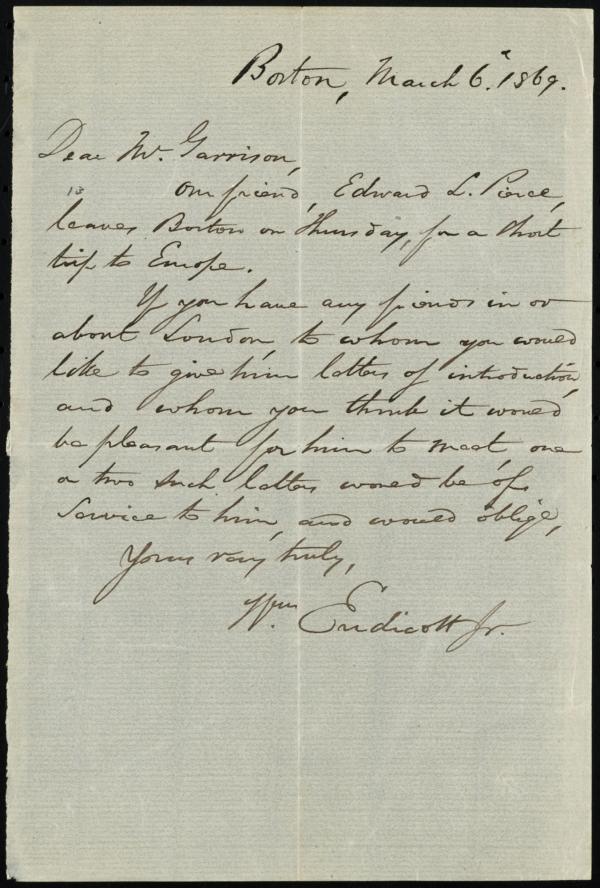 Boston, March 6. 1869.
Dear Mr. Garrison,
Our friend, Edward L. Pierce,
leaves Boston on Thursday, for a short
trip to Europe.
If you have any friends in or
about London, to whom you would
like to give him letters of introduction,
and whom you think it would
be pleasant for him to meet, one
or two such letters would be of
service to him, and would oblige,
Yours very truly,
Wm. Endicott Jr.